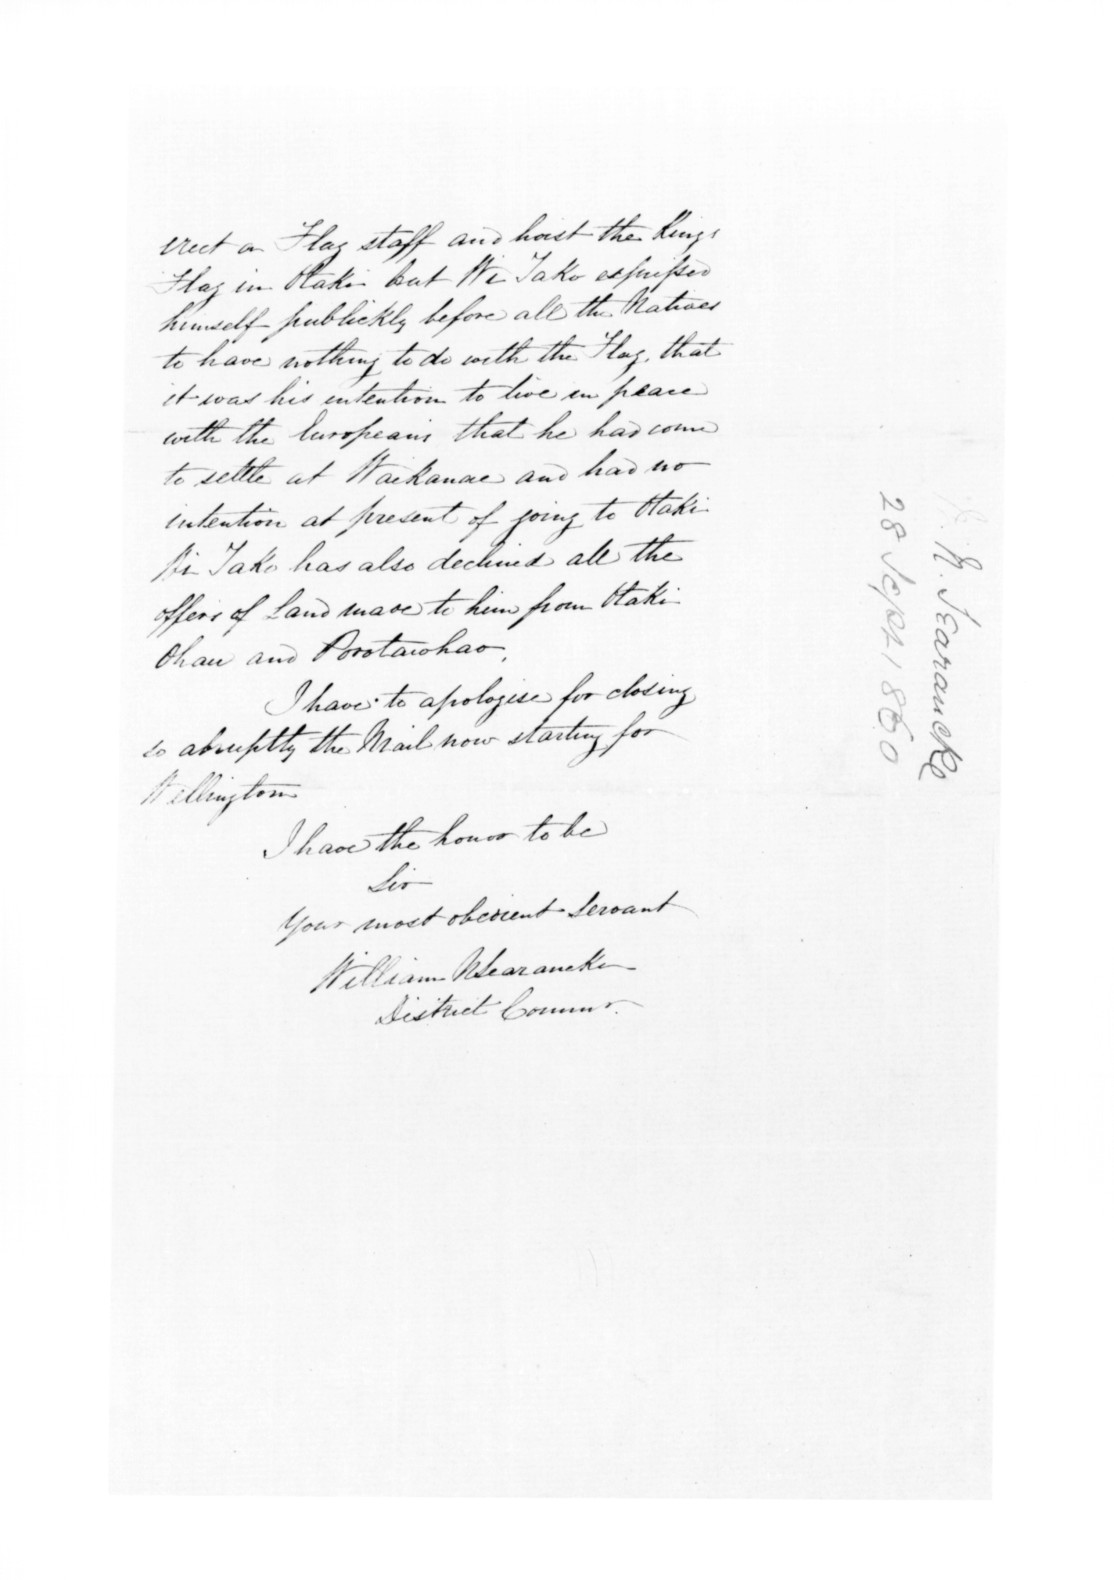 erect a Flag staff and hoist the Kings
Flag in Otaki but Wi Tako expressed
himself publickly before all the Natives
to have nothing to do with the Flag, that
it was his intention to live in peace
with the Europeans that he had come
to settle at Waikanae and had no
intention at present of going to Otaki
Wi Tako has also declined all the
offers of Land made to him from Otaki
Ohau and Porotawhao.
I have to apologise for closing
so abruptly the Mail now starting for
Wellington
I have the honor to be
Sir
Your most obedient Servant
William N Searancke
District Commr.
W. N. Searancke
28 Sept 1860